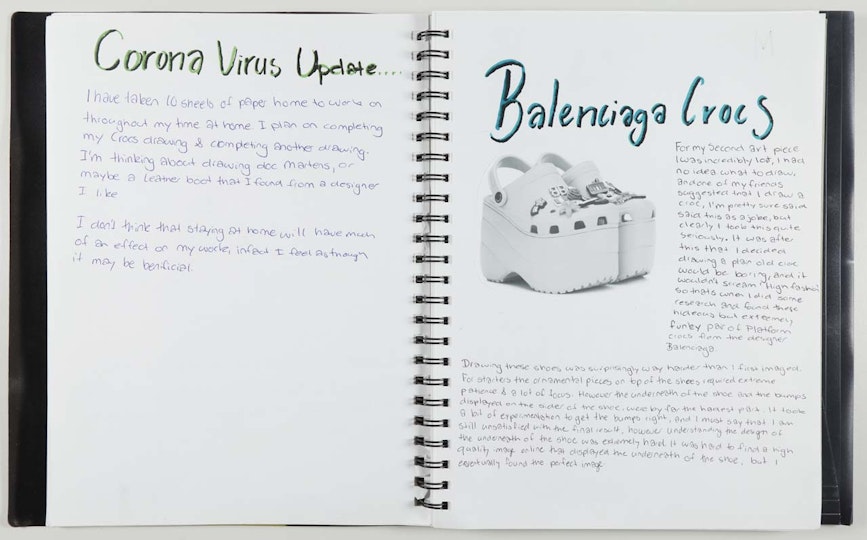 Corona Virus Update....
I have taken 10 sheets of paper home to work on
throughout my time at home. I plan on completing
my Crocs drawing & completing another drawing.
I'm thinking about drawing doc martens, or
maybe a leather boot that I found from a designer
I like
I don't think that staying at home will have much
of an effect on my work, infact I feel as though
it may be benificial.
Balenciaga Crocs
For my second art piece
I was incredibly lost, I had
no idea what to draw
and one of my friends
suggested that I draw a
croc, I'm pretty sure said
said this as a joke, but
clearly I took this quite
seriously. It was after
this that I decided
drawing a plan old croc
would be boring, and it
wouldn't scream "High fashion"
so thats when I did some
research and found these
hideous but extremely
funky par of Platform
crocs from the designer
Balenciaga
Drawing these shoes was surprisingly way harder than I first imaged.
For starters the ornamental pieces on top of the shoes required extreme
patience & a lot of focus. However the underneath of the shoe and the bumps
displayed on the sides of the shoe, were by far the hardest part. It took
a lot of experimentation to get the bumps right, and I must say that I am
still unsatisfied with the final result, however understanding the design of
the underneath of the shoe was extremely hard. It was hard to find a high
quality image online that displayed the underneath of the shoe, but I
eventually found the perfect image